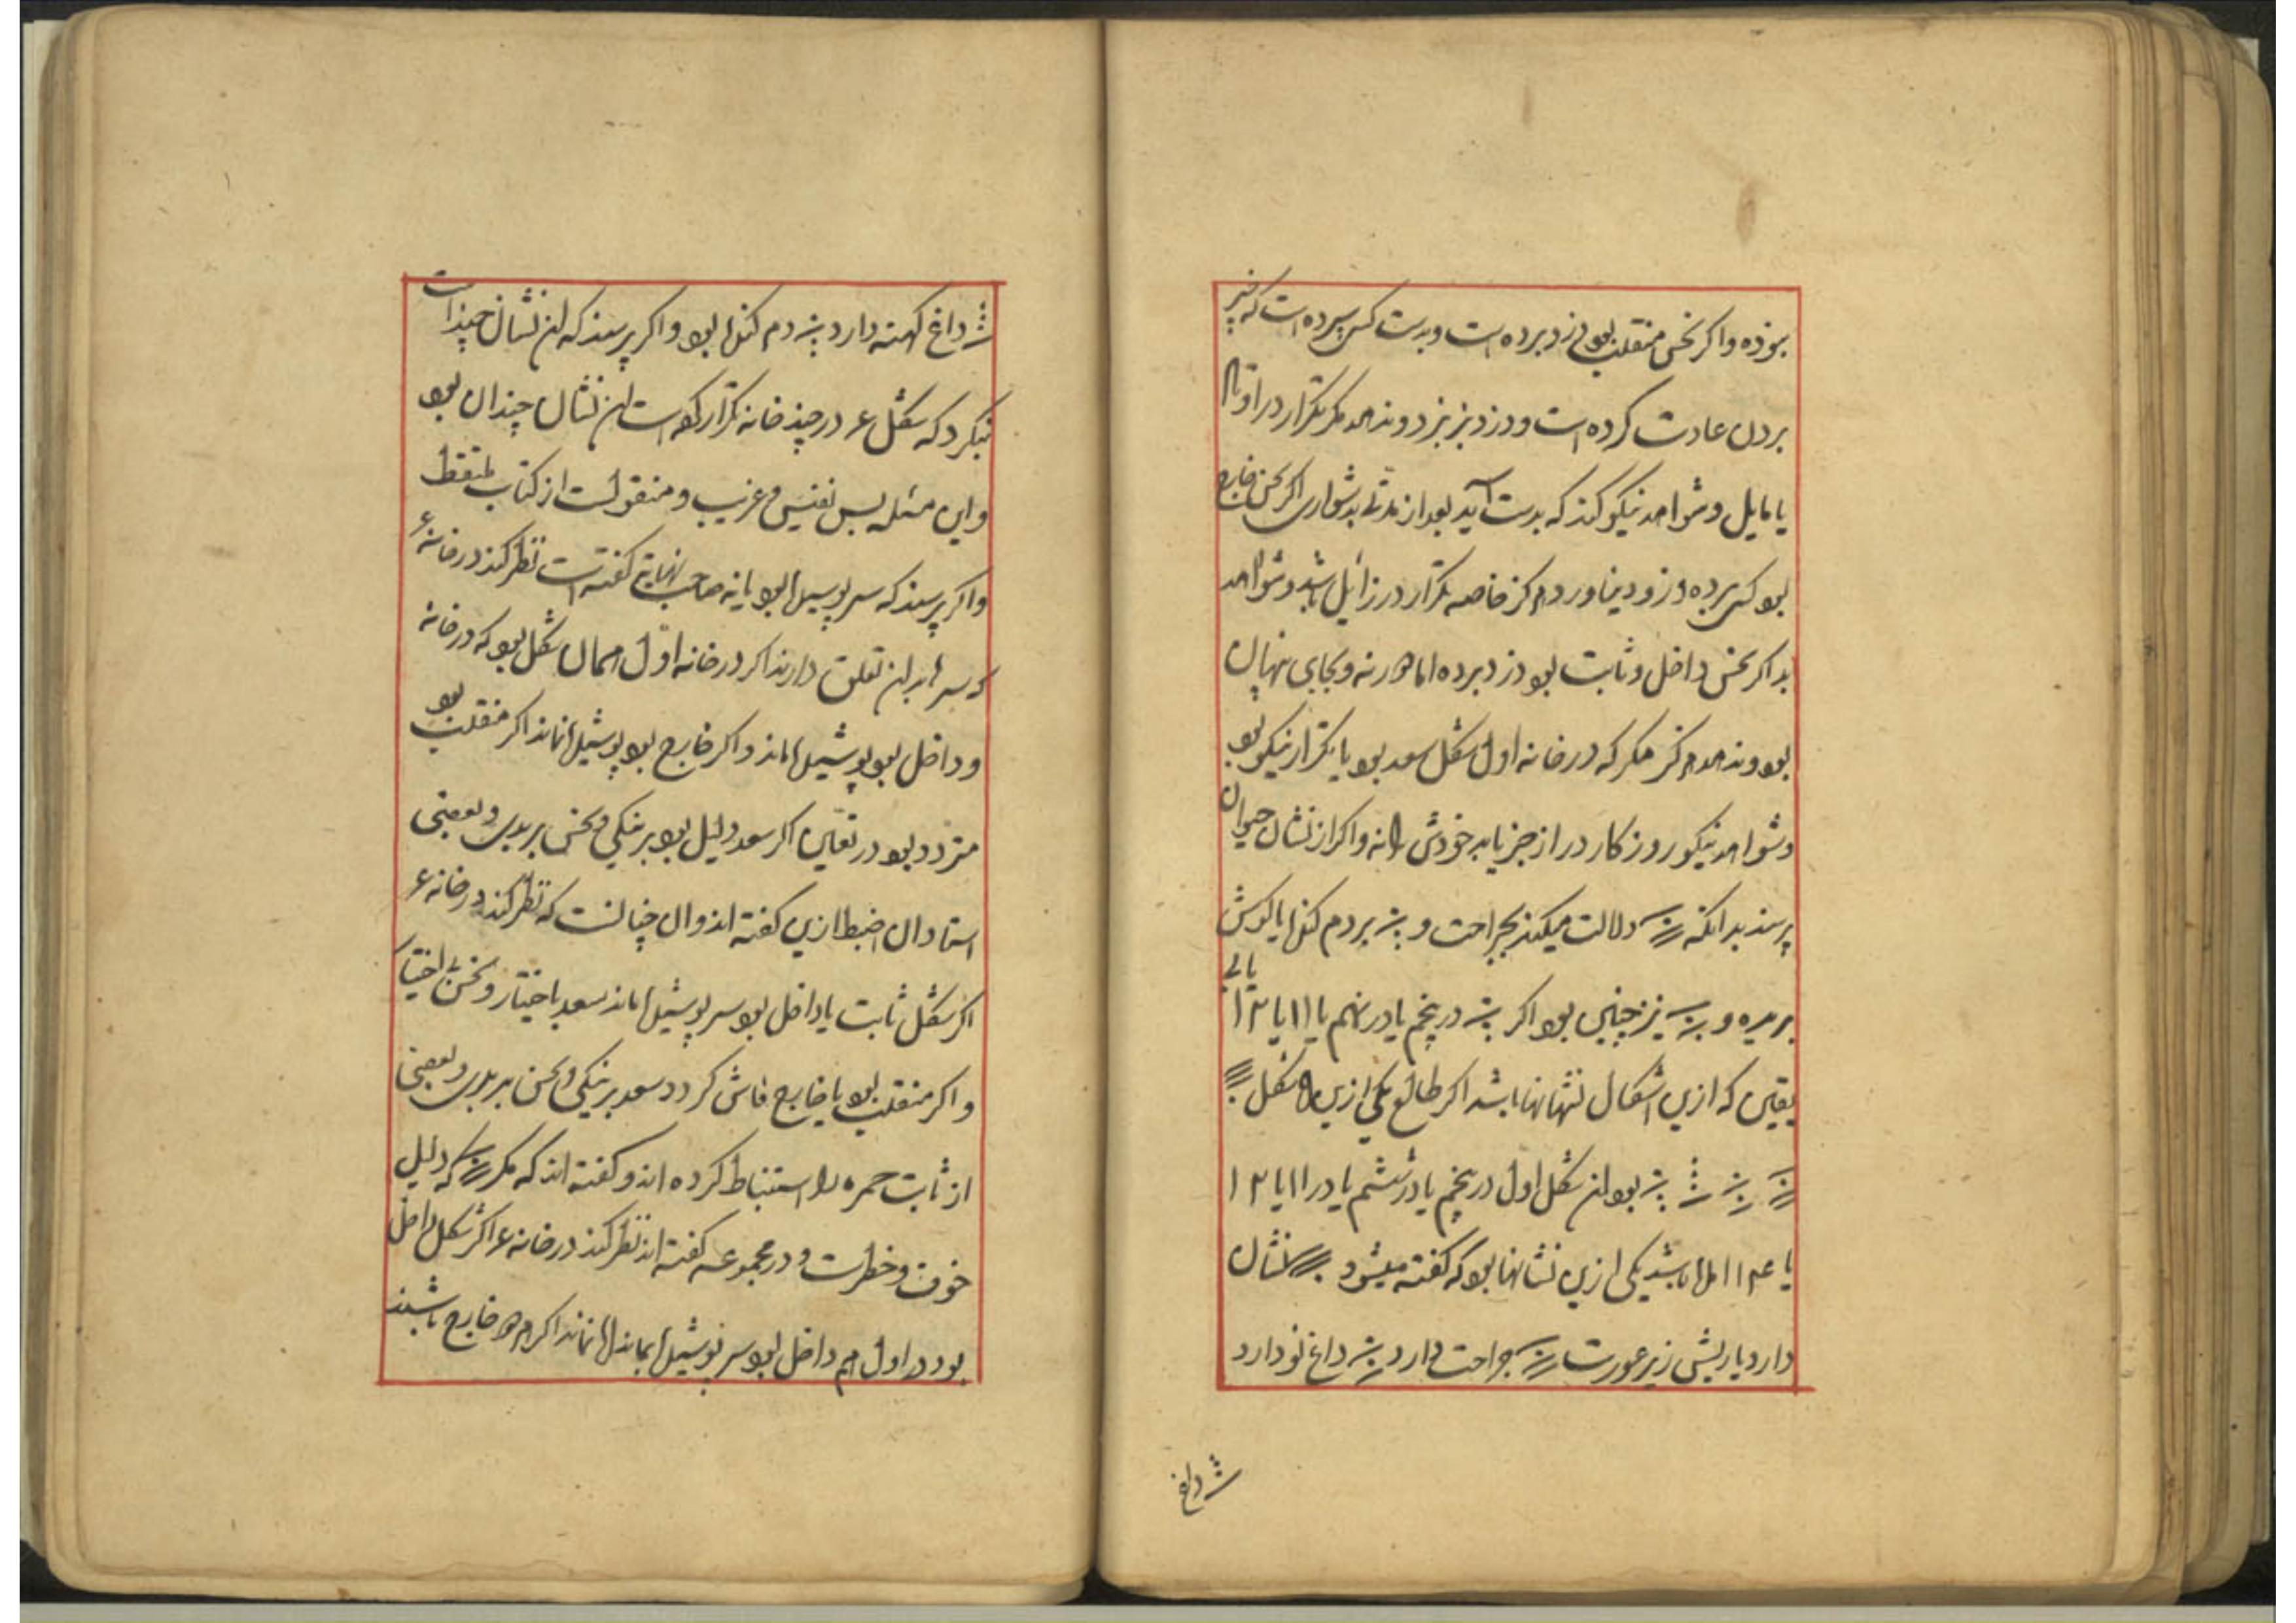 بوده و اکر نحس منقلب بود دزد برده است و بدست کس سپرده است که نیز
بردن عادت کرده است و دزد نیز بزد و ندهد مکر تکرار در اوتاد
یا مایل و شواهد نیکو کند که بدست آید بعد از مدتی بدشواری اکر نحس خارج
بود کس برده دزد و نیاورد هرکز خاصه تکرار در زایل باشد و شواهد
بد اکر نحس داخل و ثابت بود دزد برده اما دور نه و بجای پنهان
بود و ندهد هرکز مکر که در خانه اول شکل سعد بود یا تکرار نیکو بود
و شواهد نیکو روزکار دراز جز یابد خودش را نه و اکر از نشان حیوان
پرسند بدانکه دلالت میکند بجراحت و بر دم کند یا کوش
بریده و نیز چنین بود اکر در پنجم یا در نهم یا ۱۱ یا ۱۲ یا بی
یقین که ازین اشکال نشانها باشد اکر طالع یکی ازین شکل
بود این شکل اول در پنجم یا در ششم یا در ۱۱ یا ۱۲
یا باشد یکی ازین نشانها بود که کفته میشود نشان
دارد یا ریش زیر عورت جراحت دارد داغ نو دارد
داغ
داغ کهنه دارد دم کند بود و اکر پرسند که این نشان چند است
نیکرد که شکل ۶ در چند خانه تکرار کرده است این نشان چندان بود
و این مسئله بس نفیس و غریب و منقولست از کتاب ملتقط
و اکر پرسند که سر پوشیده بود یا نه صاحب نهایة کفته است نظر کند در خانه ۶
که سر بدان تعلق دارند اکر در خانه اول همان شکل بود که در خانه
و داخل بود پوشیده ماند و اکر خارج بود پوشیده نماند اکر منقلب بود
متردد بود در تعین اکر سعد دلیل بود بر نیکی و نحس بر بدی و بعضی
استادان ضبط ازین کفته اند و ان چنانست که نظر کند در خانه ۶
اکر شکل ثابت یا داخل بود سر پوشیده ماند سعد باختیار و نحس بی اختیار
و اکر منقلب بود یا خارج فاش کردد سعد بر نیکی و نحس بر بدی و بعضی
از ثابت حمره را استنباط کرده اند و کفته اند که مکر که دلیل
خوف و خطرست و در مجموعه کفته اند نظر کند در خانه ۶ اکر شکل داخل
بود و در اول هم داخل بود سر پوشیده بماند نماند اکر هر دو خارج باشند